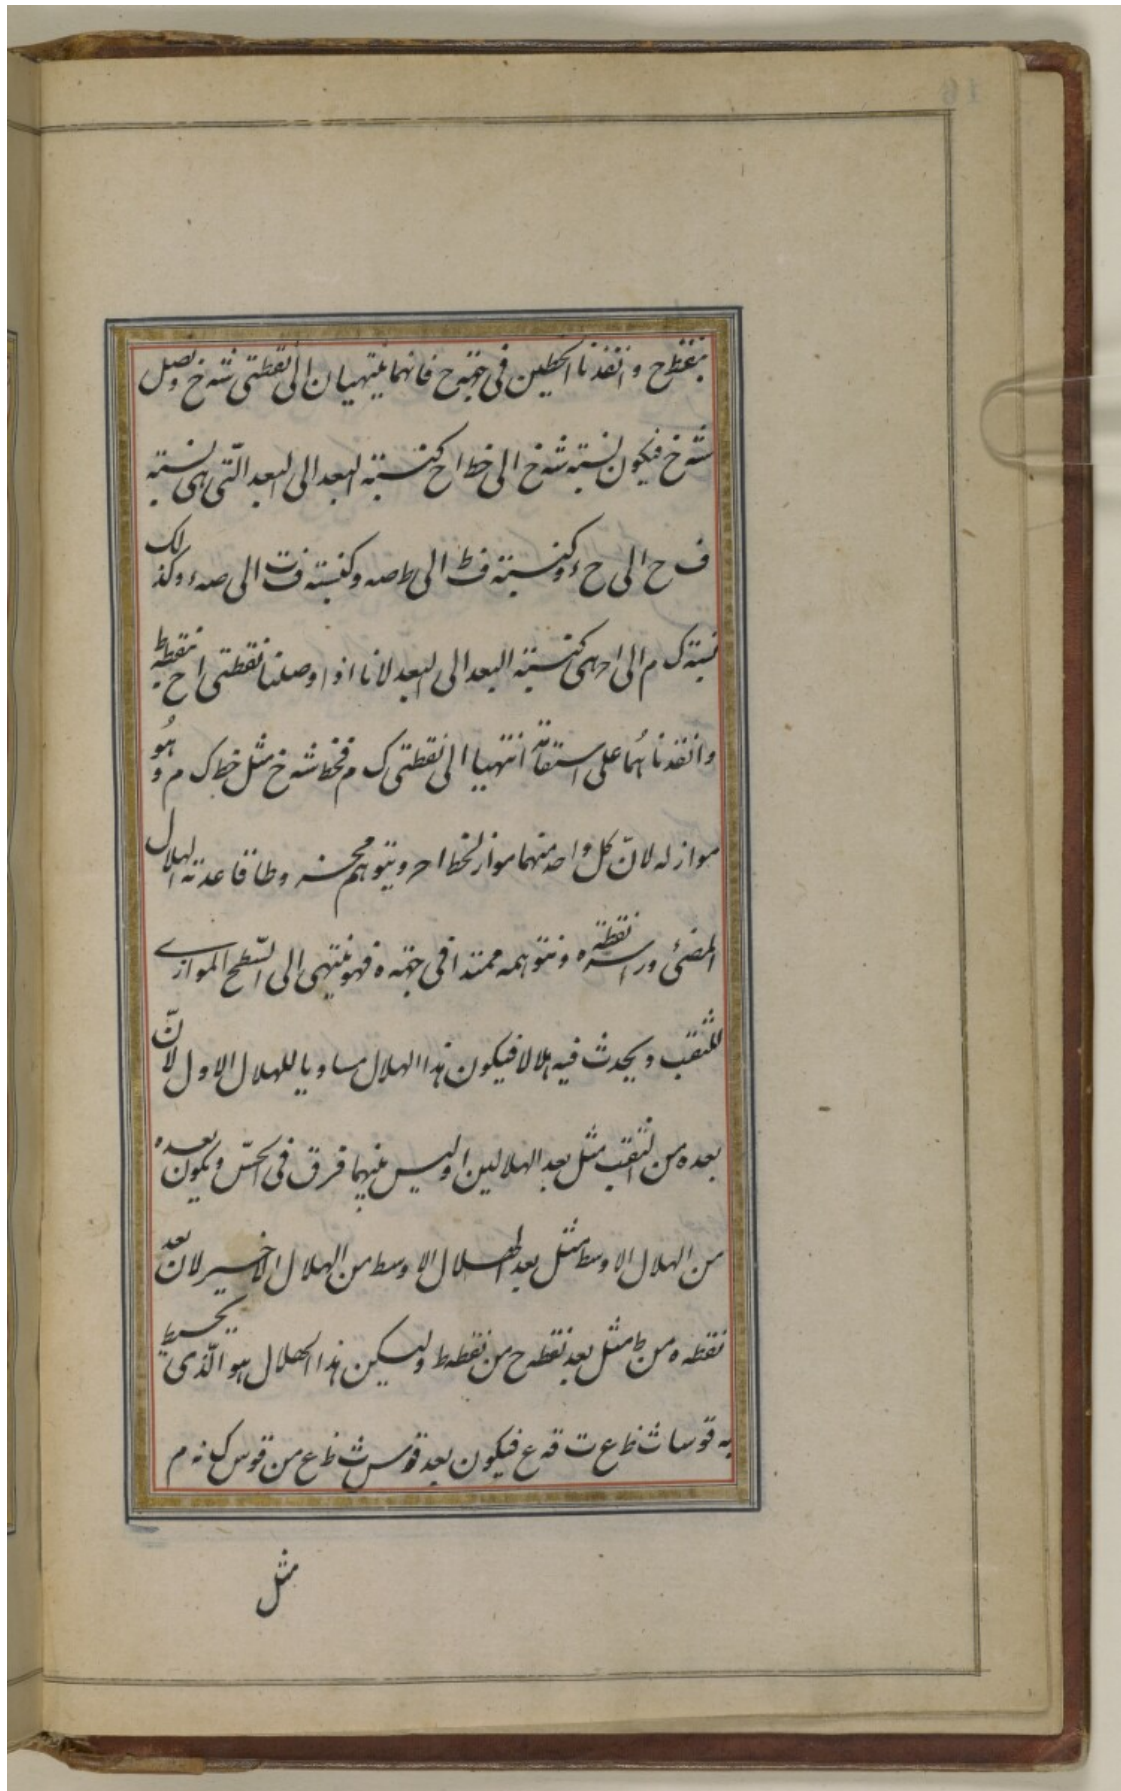 بنقطة ح وانفذنا الخطين في جهة ح فانهما ينتهيان الى نقطتي شه خ ونصل
شه خ فيكون نسبة شه خ الى خط ا ح كنسبة البعد الى البعد التي هي نسبة
ف ح الى ح ء وكنسبة ف ط الى ط صه وكنسبة ف ت الى صه ء وكذلك
نسبة ك م الى ا ح هي كنسبة البعد الى البعد لانا اذا وصلنا نقطتي ا ح بنقطة ط
وانفذناهما على استقامة انتهيا الى نقطتي ك م فخط شه خ مثل خط ك م وهو
مواز له لان كل واحد منهما مواز لخط ا ح ويتوهم مخروطا قاعدته الهلال
المضئ وراسه نقطة ه ونتوهمه ممتدا في جهة ه فهو ينتهي الى السّطح الموازي
للثقب ويحدث فيه هلالا فيكون هذا الهلال مساويا للهلال الاول لانّ
بعده من الثقب مثل بعد الهلالين اوليس بينهما فرق في الحسّ ويكون بعده
من الهلال الاوسط مثل بعد الهلال الاوسط من الهلال الاخير لان بعد
نقطة ه من ط مثل بعد نقطة ح من نقطة ط وليكن هذا الهلال هو الّذي يحيط
به قوسا ث ظ ع ث قه ع فيكون بعد قوس ث ظ ع من قوس ك نه م
مثل